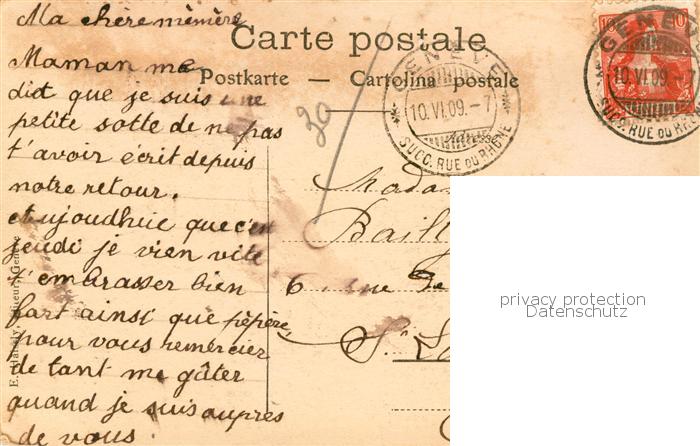 Ma chère mémère
Maman me
dit que je suis une
petite sotte de ne pas
t'avoir écrit depuis
notre retour.
aujoudhuie que c'est
jeudi je vien vite
t'embrasser bien
fort ainsi que pépère,
pour vous remercier
de tant me gâter
quand je suis auprès
de vous.
Carte postale
Postkarte — Cartolina postale
GENÈVE
10.VI.09.–7
SUCC. RUE DU RHÔNE
10 10
GENÈVE
10.VI.09.–7
SUCC. RUE DU RHÔNE
30
Adresse
6 rue
privacy protection
Datenschutz